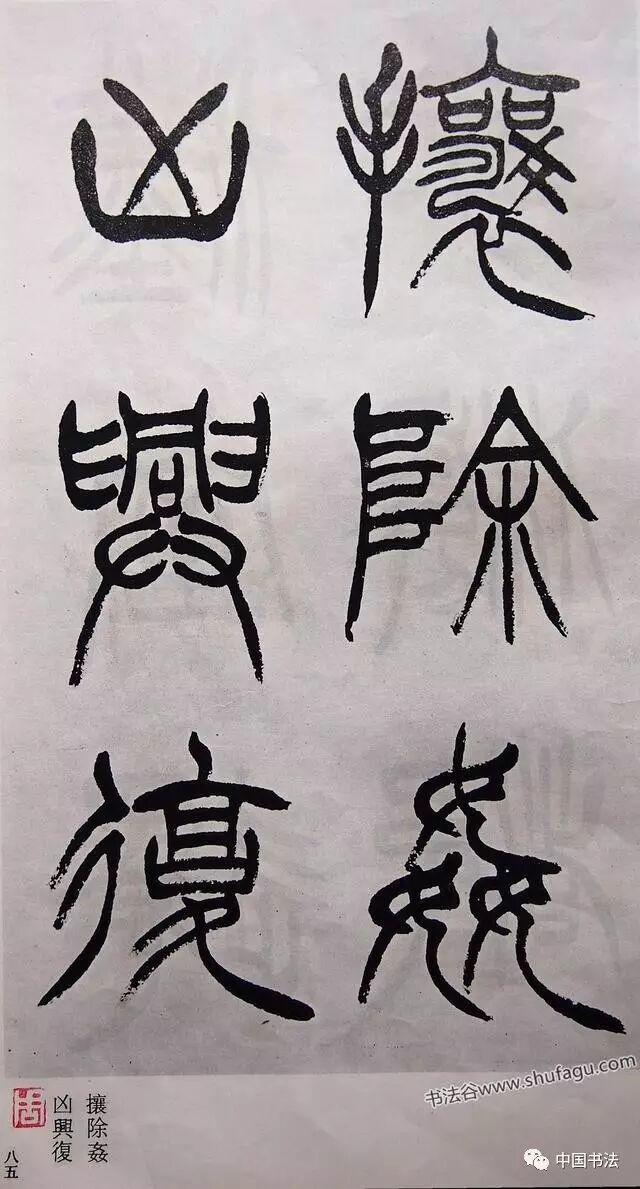 攘除姦
凶興復
攘除姦
凶興復
八五
书法谷www.shufagu.com
中国书法